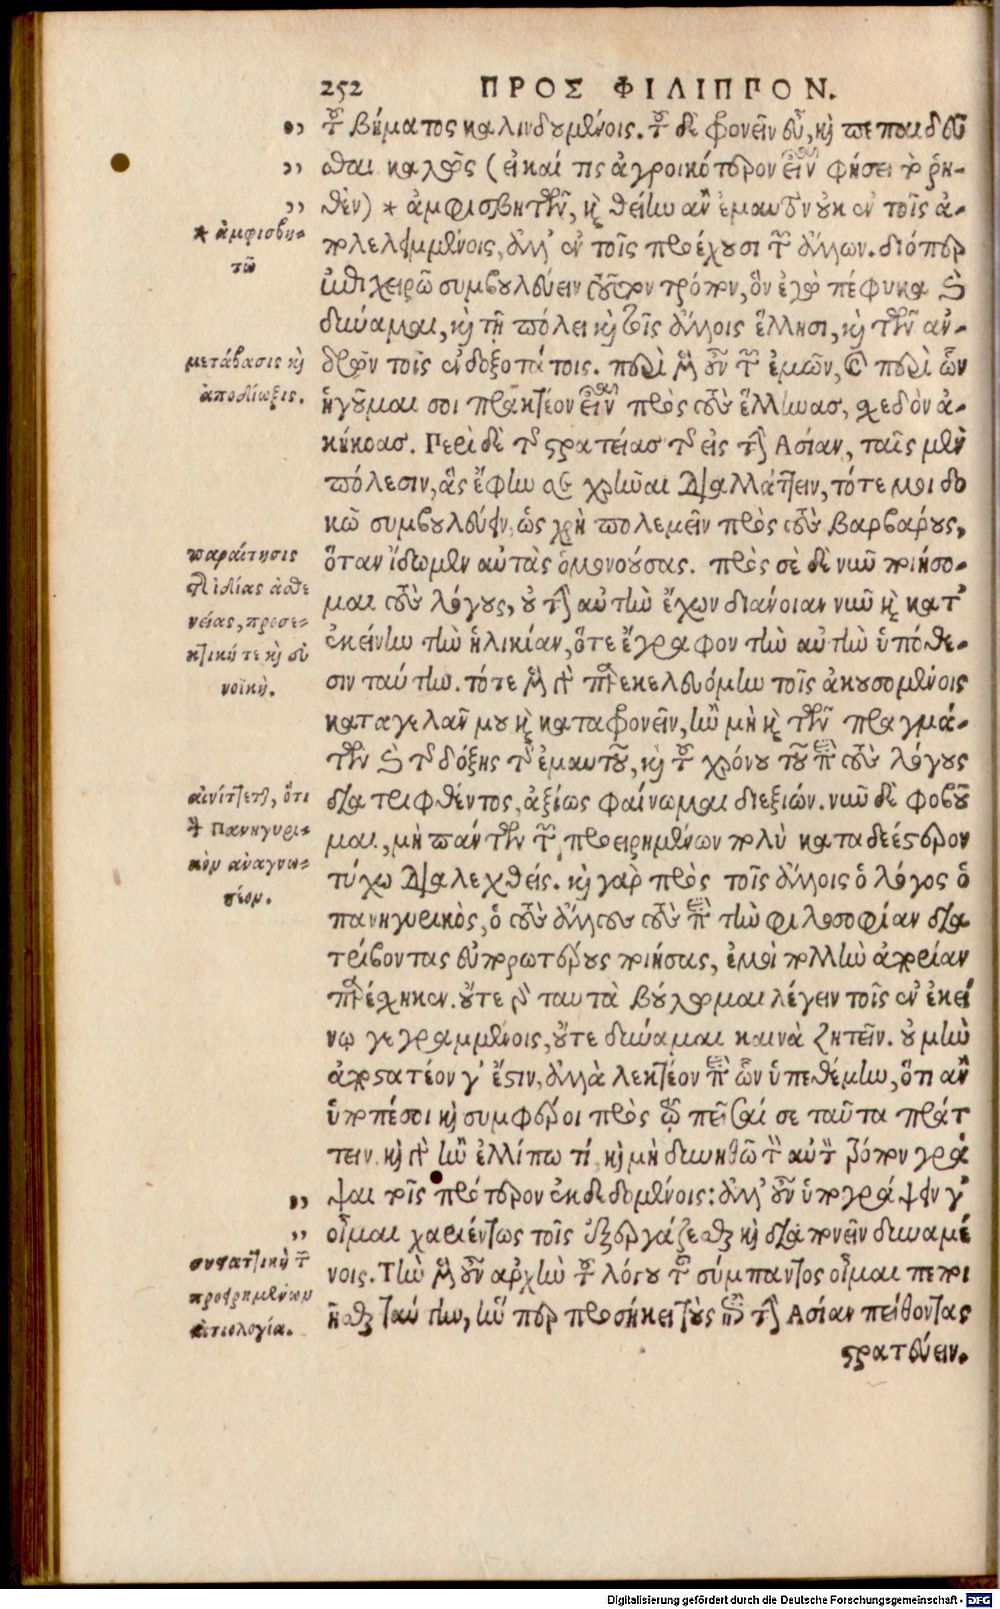 252 ΠΡΟΣ ΦΙΛΙΠΠΟΝ.
τοῦ βήματος καλινδουμένοις. τοῦ δὲ φρονεῖν εὖ, καὶ πεπαιδεῦ
σθαι καλῶς (εἰ καί τις ἀγροικότερον εἶναι φήσει τὸ ῥη-
θὲν) * ἀμφισβητῶ, καὶ θείην ἂν ἐμαυτὸν οὐκ ἐν τοῖς ἀ-
πολελειμμένοις, ἀλλ' ἐν τοῖς προέχουσι τῶν ἄλλων. διόπερ
ἐπιχειρῶ συμβουλεύειν τοῦτον τρόπον, ὃν ἐγὼ πέφυκα καὶ
δύναμαι, καὶ τῇ πόλει καὶ τοῖς ἄλλοις ἕλλησι, καὶ τῶν ἀν-
δρῶν τοῖς ἐνδοξοτάτοις. περὶ μὲν οὖν τῶν ἐμῶν, καὶ περὶ ὧν
ἡγοῦμαι σοι πρακτέον εἶναι πρὸς τοὺς ἕλληνας, σχεδὸν ἀ-
κήκοας. Περὶ δὲ τῆς στρατείας τῆς εἰς τὴν Ἀσίαν, ταῖς μὲν
πόλεσιν, ἃς ἔφην σε χρῆναι διαλλάττειν, τότε μοι δο
κῶ συμβουλεύειν, ὡς χρὴ πολεμεῖν πρὸς τοὺς βαρβάρους,
ὅταν ἴδωμεν αὐτὰς ὁμονούσας. πρὸς σὲ δὲ νῦν ποιήσο-
μαι τοὺς λόγους, οὐ τὴν αὐτὴν ἔχων διάνοιαν νῦν καὶ κατ'
ἐκείνην τὴν ἡλικίαν, ὅτε ἔγραφον τὴν αὐτὴν ὑπόθε-
σιν ταύτην. τότε μὲν γὰρ παρεκελευόμην τοῖς ἀκουσομένοις
καταγελᾶν μου καὶ καταφρονεῖν, ἢν μὴ καὶ τῶν πραγμά-
των καὶ τῆς δόξης τῆς ἐμαυτοῦ, καὶ τοῦ χρόνου τοῦ περὶ τοὺς λόγους
διατριφθέντος, ἀξίως φαίνωμαι διεξιών. νῦν δὲ φοβοῦ
μαι, μὴ πάντων τῶν προειρημένων πολὺ καταδεέστερον
τύχω διαλεχθείς. καὶ γὰρ πρὸς τοῖς ἄλλοις ὁ λόγος ὁ
πανηγυρικὸς, ὁ τοὺς ἄλλους τοὺς περὶ τὴν φιλοσοφίαν δια
τρίβοντας εὐπορωτέρους ποιήσας, ἐμοὶ πολλὴν ἀπορίαν
παρέσχηκεν. οὔτε γὰρ ταυτὰ βούλομαι λέγειν τοῖς ἐν ἐκεί
νῳ γεγραμμένοις, οὔτε δύναμαι καινὰ ζητεῖν. οὐ μὴν
ἀποστατέον γ' ἔστιν, ἀλλὰ λεκτέον περὶ ὧν ὑπεθέμην, ὅτι ἂν
ὑποπέσοι καὶ συμφέροι πρὸς τὸ πεῖσαί σε ταῦτα πράτ
τειν. καὶ γὰρ ἢν ἐλλίπω τί, καὶ μὴ δυνηθῶ τὸν αὐτὸν τρόπον γρά
ψαι τοῖς πρότερον ἐκδεδομένοις: ἀλλ' οὖν ὑπογράψειν γ'
οἶμαι χαριέντως τοῖς ἐξεργάζεσθαι καὶ διαπονεῖν δυναμέ
νοις. Τὴν μὲν οὖν ἀρχὴν τοῦ λόγου τοῦ σύμπαντος οἶμαι πεποι
ῆσθαι ταύτην, ἥν περ προσήκει τοὺς ἐπὶ τὴν Ἀσίαν πείθοντας
στρατεύειν.
* ἀμφισβη-
τῶ
μετάβασις καὶ
ἀποδίωξις.
παραίτησις
ἰδίας ἀσθε
νείας, προσε-
κτική τε καὶ εὐ
νοϊκή.
αἰνίττεται, ὅτι
τὸν Πανηγυρι-
κὸν ἀναγνω-
στέον.
συστατικὴ τῶν
προειρημένων
αἰτιολογία.
Digitalisierung gefördert durch die Deutsche Forschungsgemeinschaft - DFG